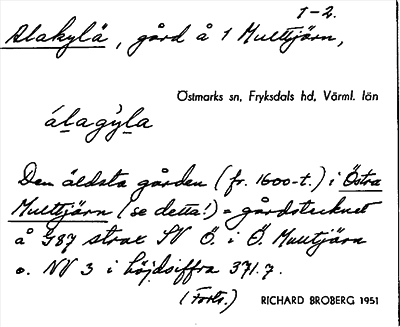 1-2.
Alakylä, gård å 1 Multtjärn,
Östmarks sn, Fryksdals hd, Värml. län
álagỳla
Den äldsta gården (fr. 1600-t.) i Östra
Multtjärn (se detta!) = gårdstecknet
å G87 strax SV Ö. i Ö. Multtjärn
o. NV 3 i höjdsiffra 371.7.
(Forts.)
RICHARD BROBERG 1951